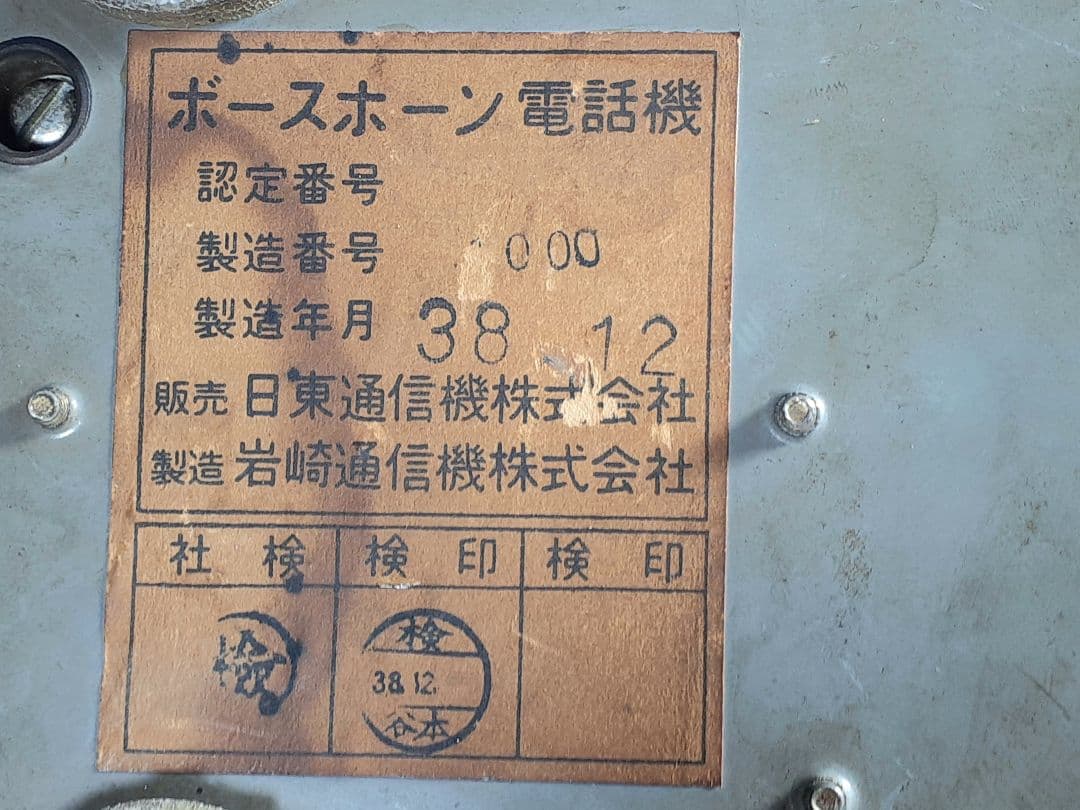 ボースホーン電話機
認定番号
製造番号 1000
製造年月 38 12
販売 日東通信機株式会社
製造 岩崎通信機株式会社
社検 検印 検印
検
検
38.12.
谷本